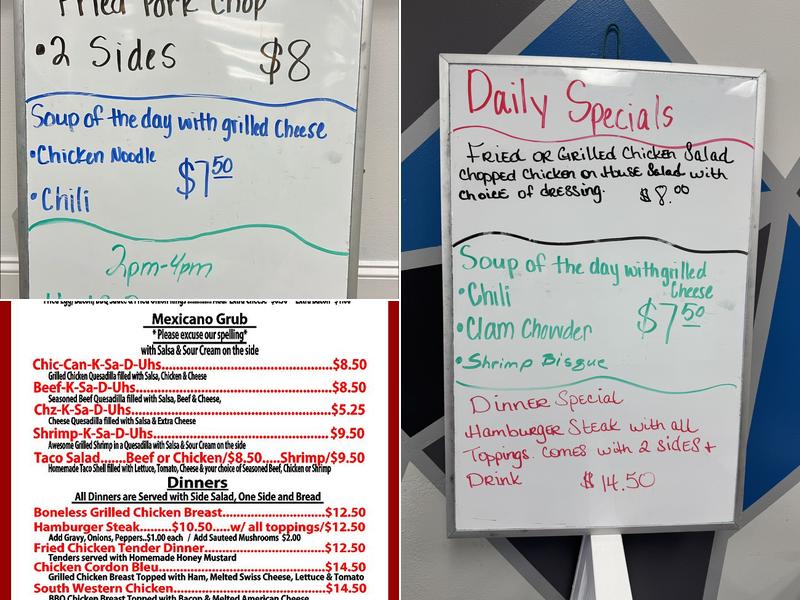 Fried Pork Chop
•2 Sides $8
Soup of the day with grilled Cheese
•Chicken Noodle
$7.50
•Chili
2pm-4pm
Daily Specials
Fried or Grilled Chicken Salad
Chopped Chicken on House Salad with
choice of dressing. $8.00
Soup of the day with grilled
Cheese
•Chili
$7.50
•Clam Chowder
•Shrimp Bisque
Dinner Special
Hamburger Steak with all
Toppings. comes with 2 sides +
Drink $14.50
Mexicano Grub
*Please excuse our spelling*
with Salsa & Sour Cream on the side
Chic-Can-K-Sa-D-Uhs...............................$8.50
Grilled Chicken Quesadilla filled with Salsa, Chicken & Cheese
Beef-K-Sa-D-Uhs....................................$8.50
Seasoned Beef Quesadilla filled with Salsa, Beef & Cheese,
Chz-K-Sa-D-Uhs.....................................$5.25
Cheese Quesadilla filled with Salsa & Extra Cheese
Shrimp-K-Sa-D-Uhs................................$9.50
Awesome Grilled Shrimp in a Quesadilla with Salsa & Sour Cream on the side
Taco Salad......Beef or Chicken/$8.50.....Shrimp/$9.50
Homemade Taco Shell filled with Lettuce, Tomato, Cheese & your choice of Seasoned Beef, Chicken or Shrimp
Dinners
All Dinners are Served with Side Salad, One Side and Bread
Boneless Grilled Chicken Breast....................$12.50
Hamburger Steak.........$10.50.....w/ all toppings/$12.50
Add Gravy, Onions, Peppers..$1.00 each / Add Sauteed Mushrooms $2.00
Fried Chicken Tender Dinner.........................$12.50
Tenders served with Homemade Honey Mustard
Chicken Cordon Bleu..................................$14.50
Grilled Chicken Breast Topped with Ham, Melted Swiss Cheese, Lettuce & Tomato
South Western Chicken..............................$14.50
BBQ Chicken Breast Topped with Bacon & Melted American Cheese